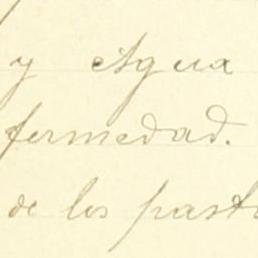 y Agua
fermedad.
de los past